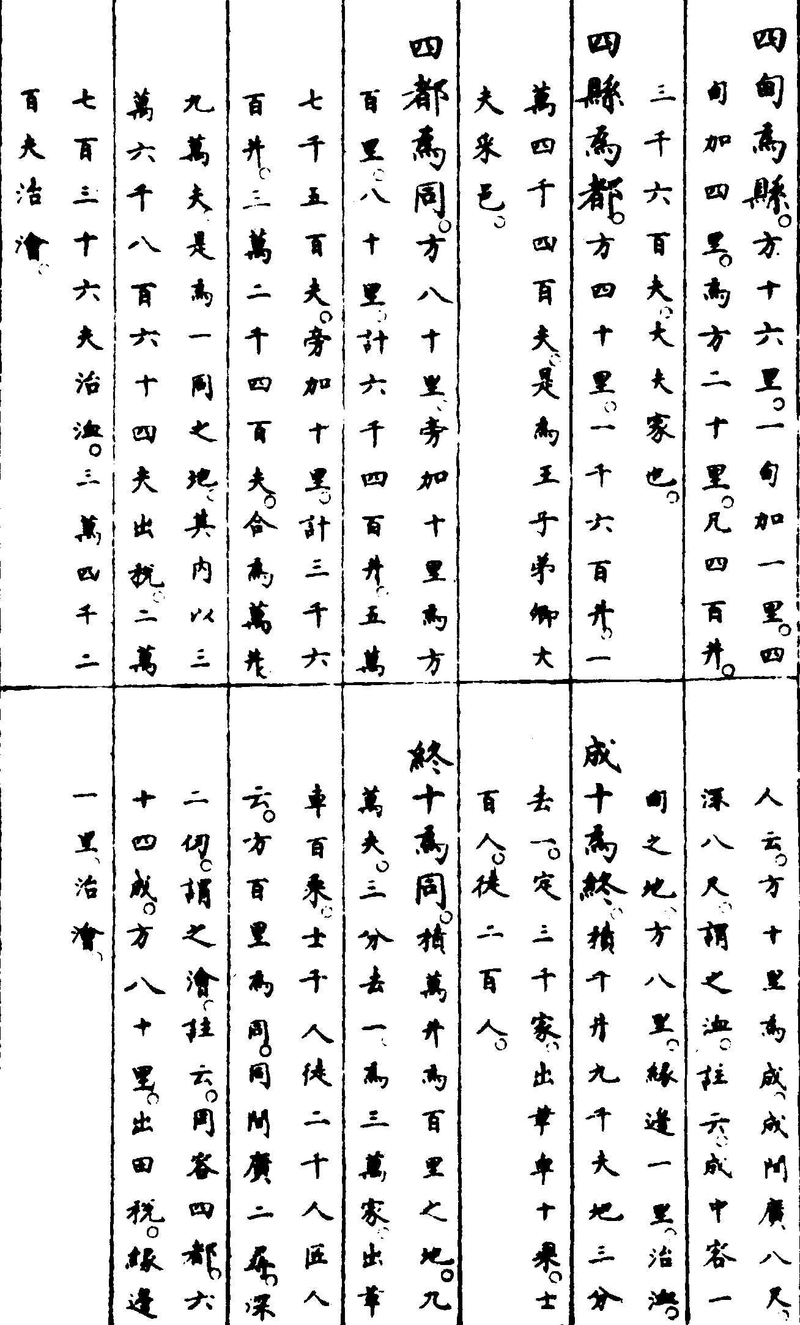 四甸為縣。方十六里。一甸加一里。四
甸加四里。為方二十里。凡四百井。
三千六百夫。大夫家也。
四縣為都。方四十里。一千六百井。一
萬四千四百夫。是為王子弟卿大
夫采邑。
四都為同。方八十里。旁加十里為方
百里。八十里。計六千四百井。五萬
七千五百夫。旁加十里。計三千六
百井。三萬二千四百夫。合為萬井
九萬夫。是為一同之地。其内以三
萬六千八百六十四夫出稅。二萬
七百三十六夫治洫。三萬四千二
百夫治澮。
人云。方十里為成。成間廣八尺。
深八尺。謂之洫。註云。成中容一
甸之地。方八里。緣邊一里。治洫。
成十為終。積千井九千夫地三分
去一。定三千家。出革車十乗。士
百人。徒二百人。
終十為同。積萬井為百里之地。九
萬夫。三分去一。為三萬家。出革
車百乗。士千人徒二千人匠人
云。方百里為同。同間廣二尋。深
二仞。謂之澮。註云。同容四都。六
十四成。方八十里。出田稅。緣邊
一里、治澮、